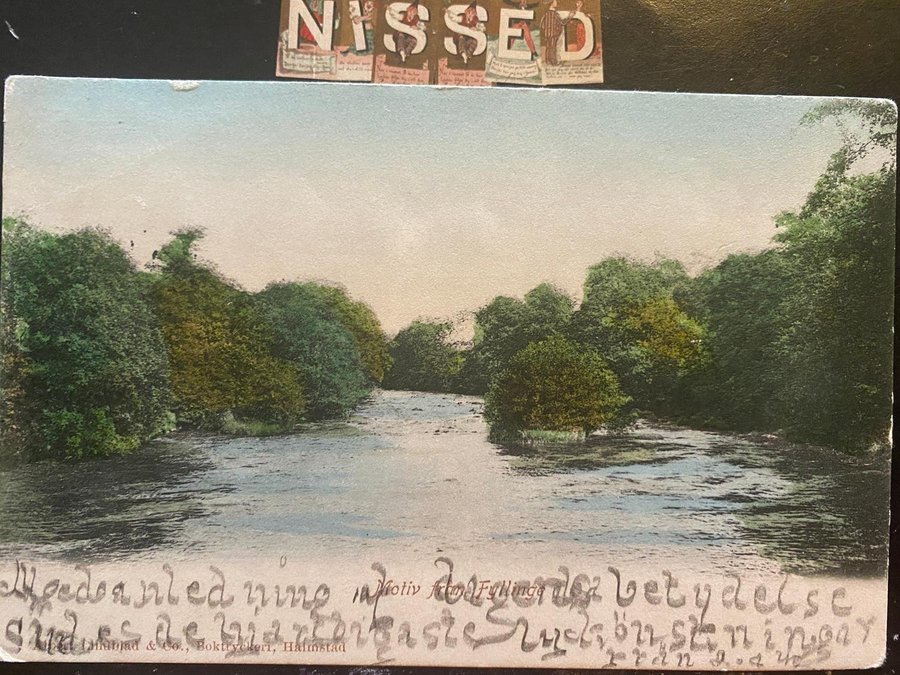 NISSED
Motiv från Fyllinge
Med anledning af dagens betydelse
sändes de hjärtligaste lyckönskningar
från
& Co., Boktryckeri, Halmstad